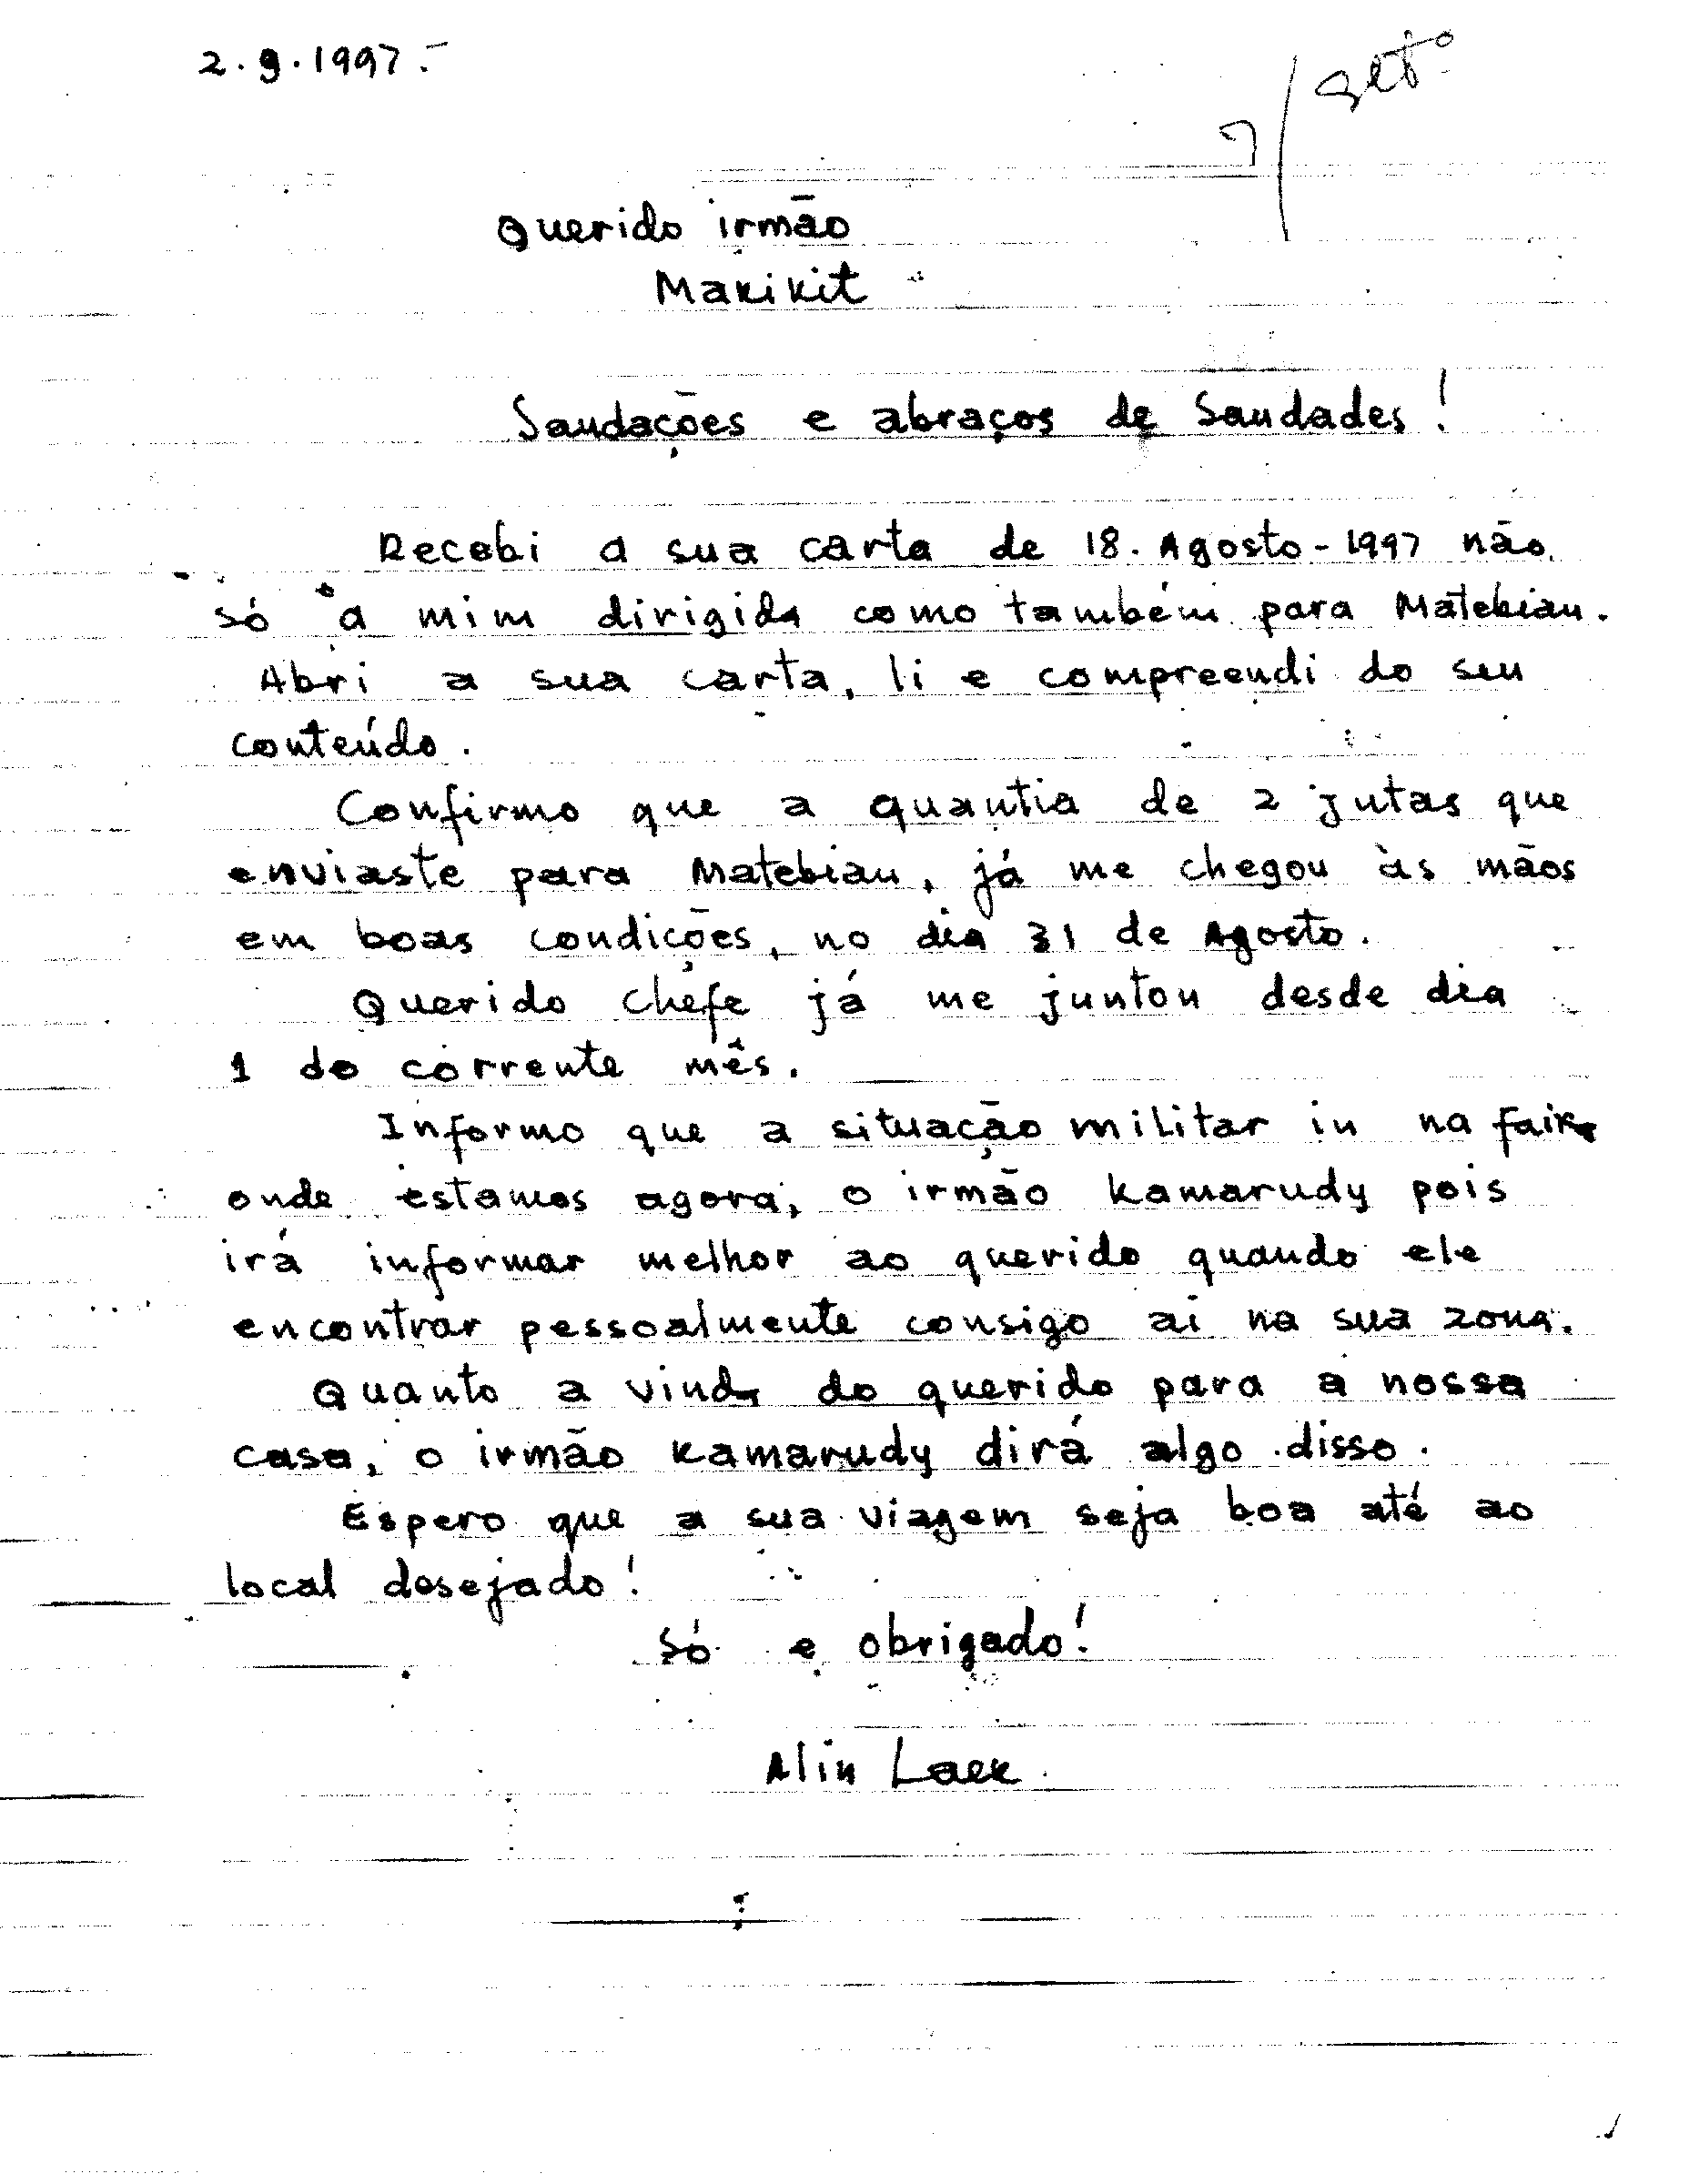 2.9.1997.-
7/set°
Querido irmão
Makikit
Saudações e abraços de Saudades!
Recebi a sua carta de 18. Agosto-1997 não
só a mim dirigida como também para Matebian.
Abri a sua carta, li e compreendi do seu
conteúdo.
Confirmo que a quantia de 2 jutas que
enviaste para Matebian, já me chegou às mãos
em boas condições, no dia 31 de Agosto.
Querido chefe já me juntou desde dia
1 do corrente mês.
Informo que a situação militar in na faixa
onde estamos agora, o irmão Kamarudy pois
irá informar melhor ao querido quando ele
encontrar pessoalmente consigo ai na sua zona.
Quanto a vinda do querido para a nossa
casa, o irmão Kamarudy dirá algo disso.
Espero que a sua viagem seja boa até ao
local desejado!
Só e obrigado!
Alin Laek